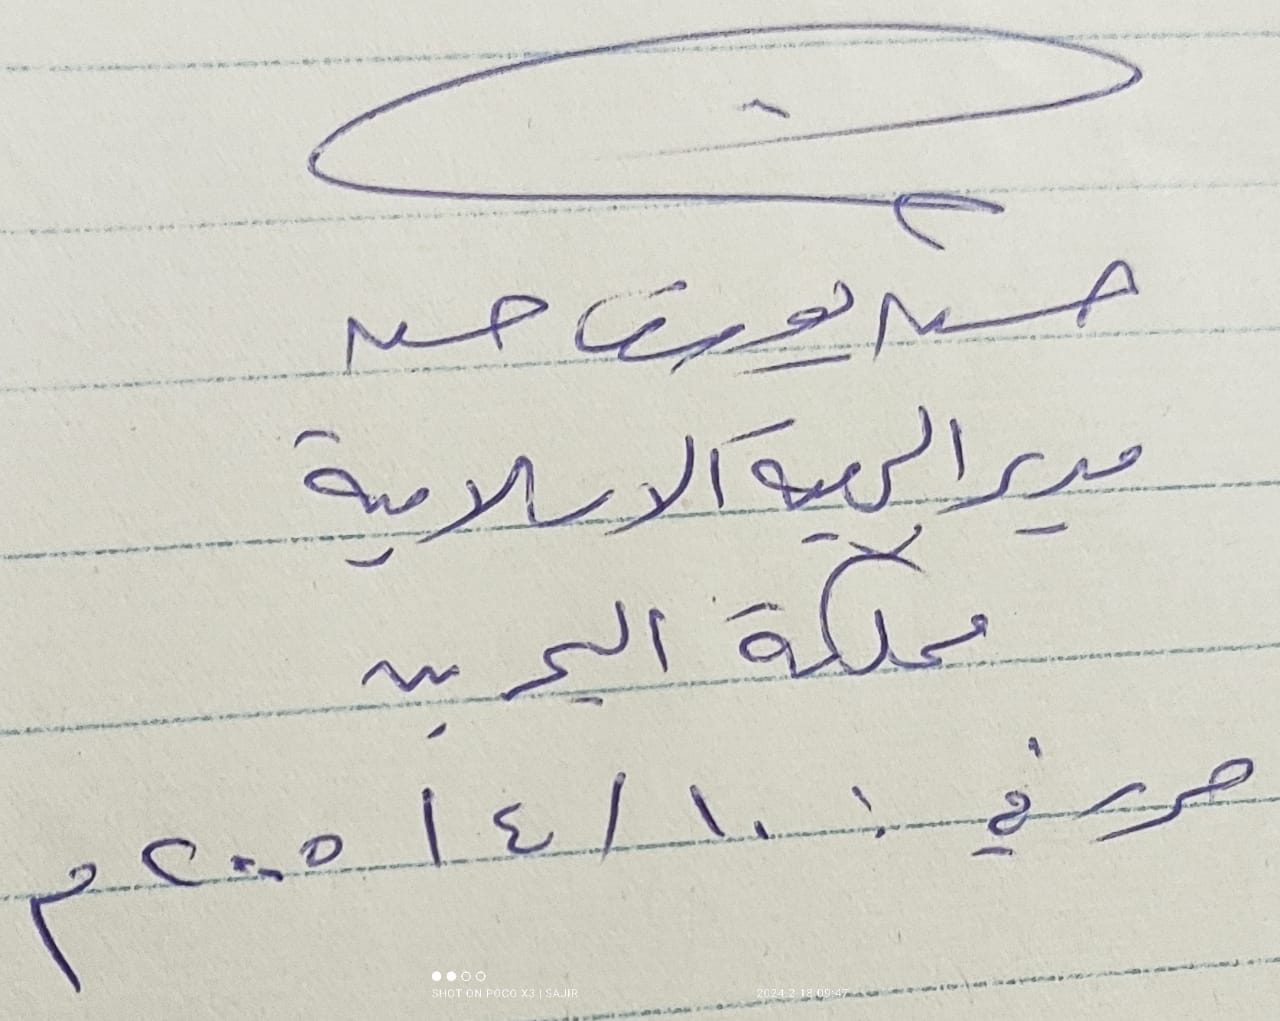 حسن يوسف حسن
مدير التربية الاسلامية
مملكة البحرين
حرر في : ١٠ / ٤ / ٢٠٠٥ م
SHOT ON POCO X3 | SAJIR
2024.2.18 09:47